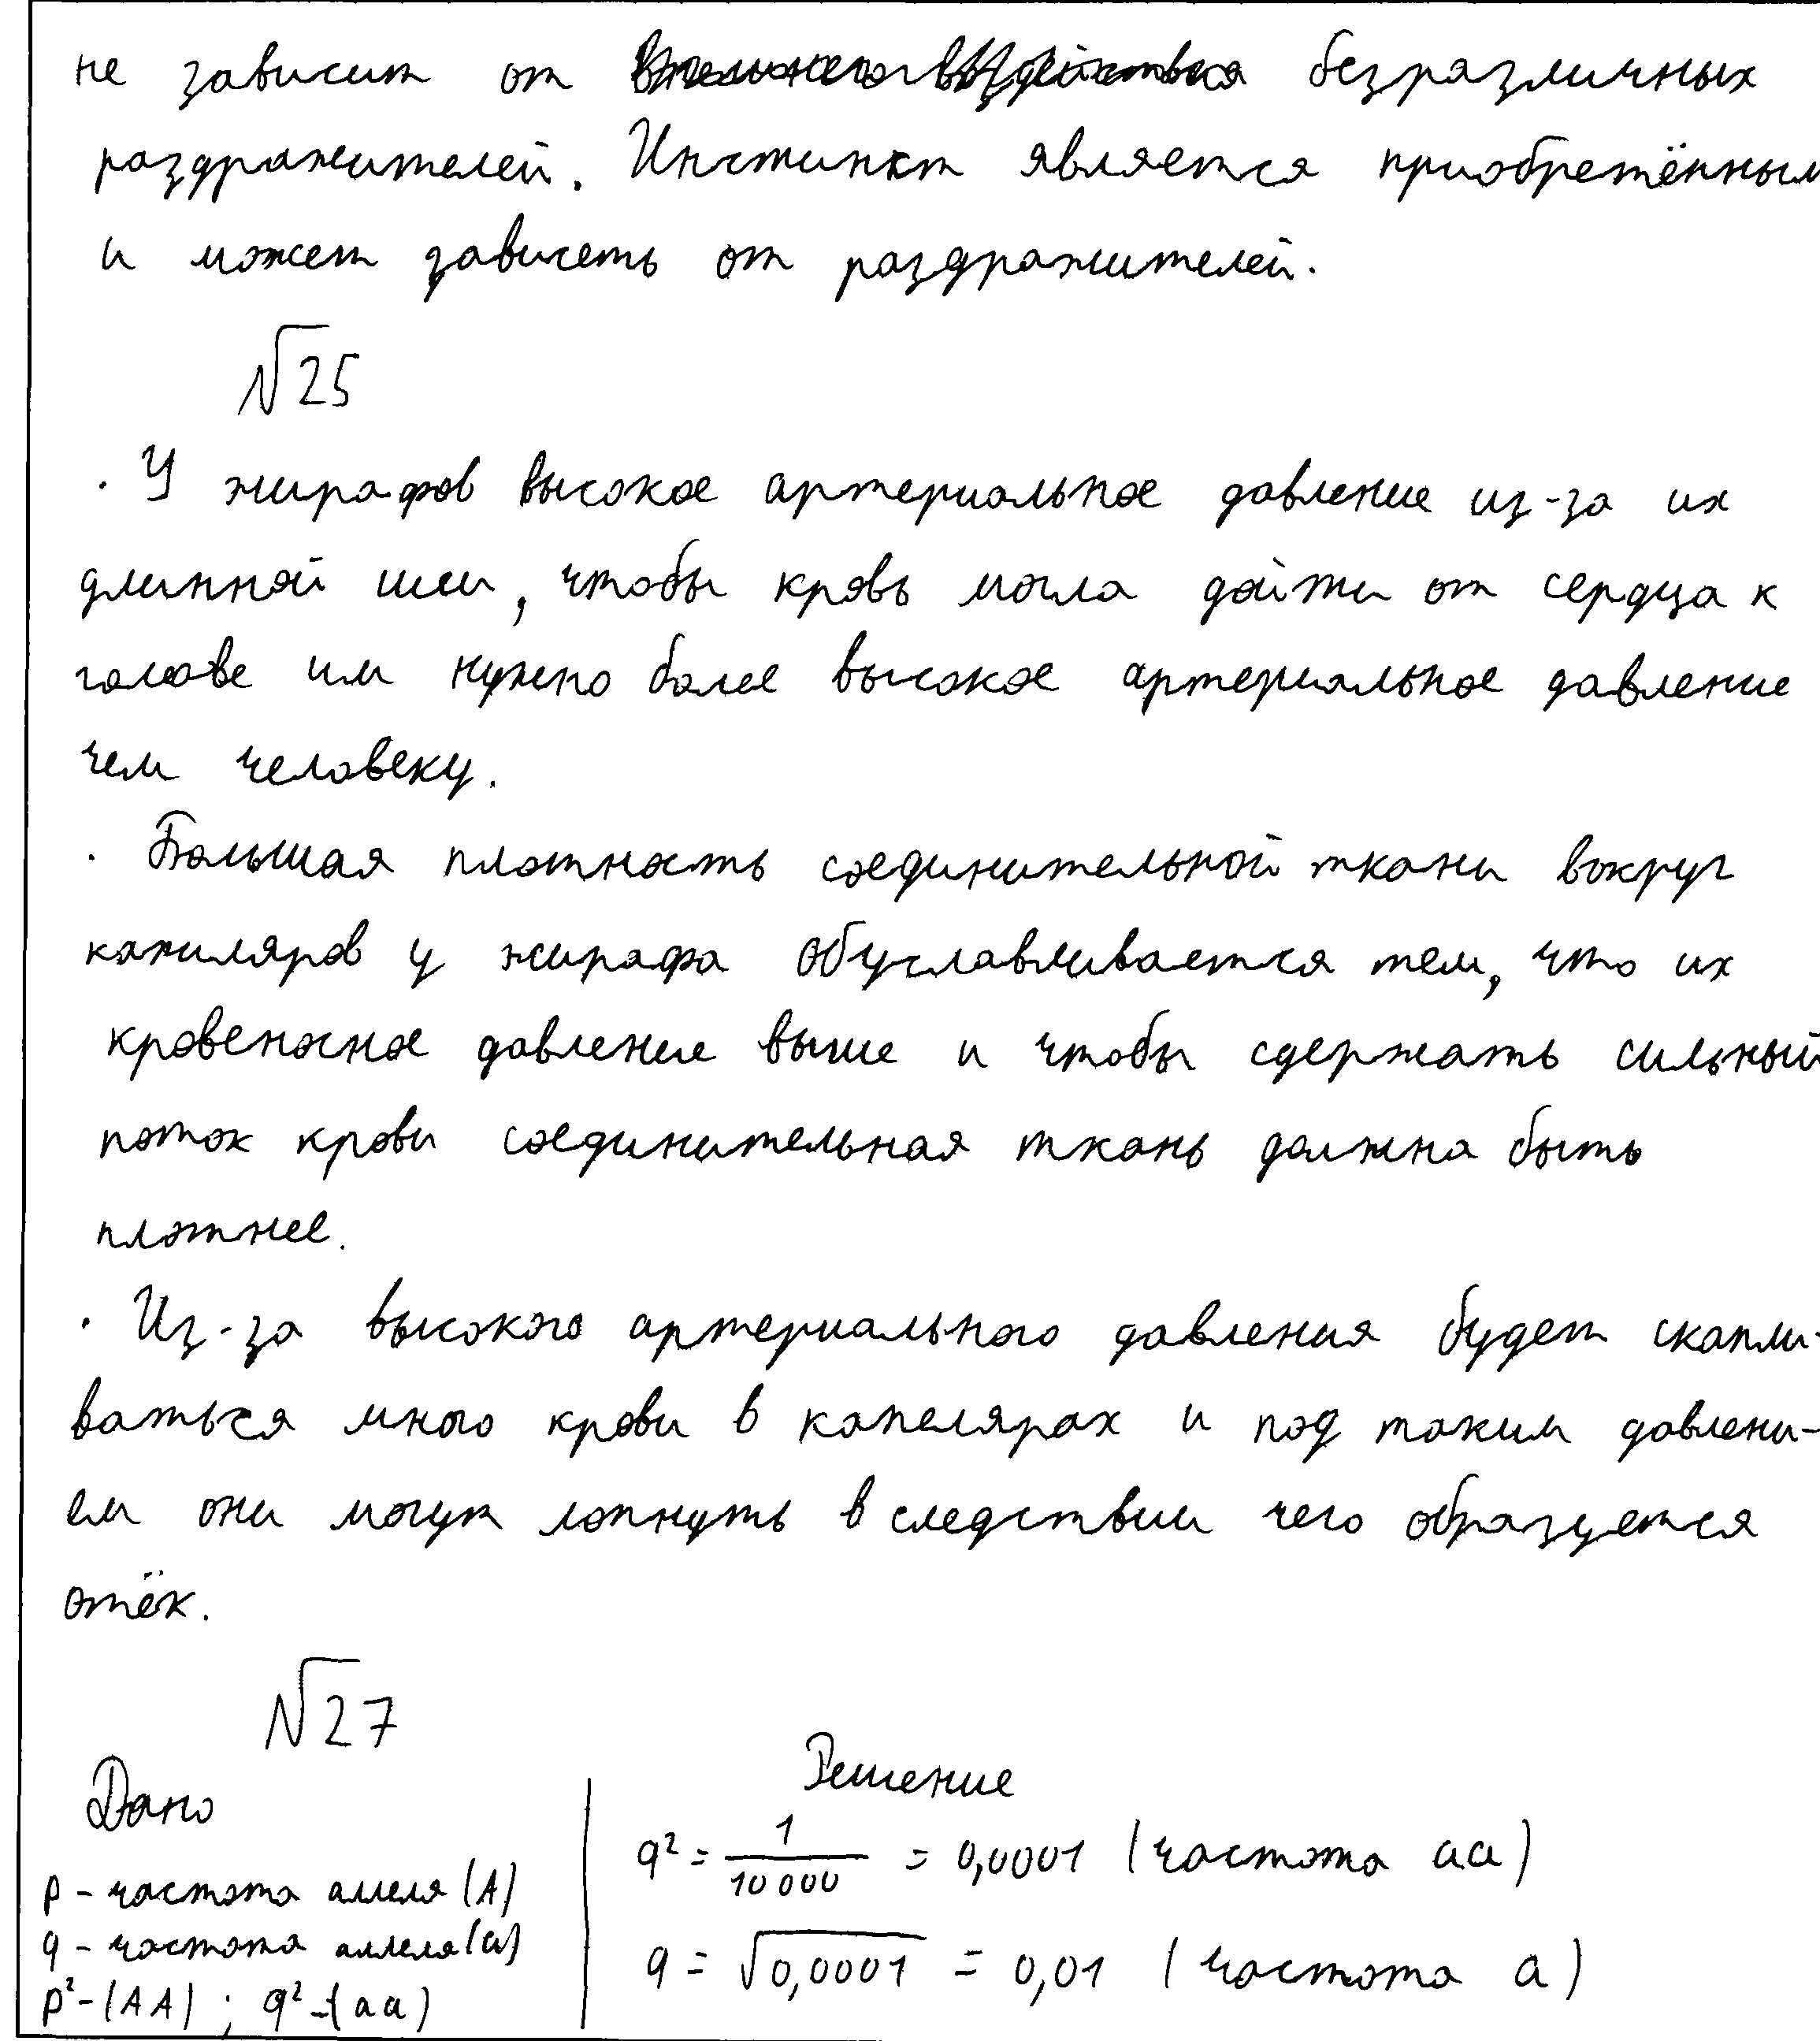 не зависит от безразличных
раздражителей. Инстинкт является приобретённым
и может зависеть от раздражителей.
№25
· У жирафов высокое артериальное давление из-за их
длинной шеи, чтобы кровь могла дойти от сердца к
голове им нужно более высокое артериальное давление
чем человеку.
· Большая плотность соединительной ткани вокруг
капиляров у жирафа обуславливается тем, что их
кровеносное давление выше и чтобы сдержать сильный
поток крови соединительная ткань должна быть
плотнее.
· Из-за высокого артериального давления будет скапли-
ваться много крови в капелярах и под таким давлени-
ем они могут лопнуть в следствии чего образуется
отёк.
№27
Дано
p - частота аллеля (A)
q - частота аллеля (a)
p² - (AA) ; q² - (aa)
Решение
q² = 1/10 000 = 0,0001 (частота aa)
q = √0,0001 = 0,01 (частота a)